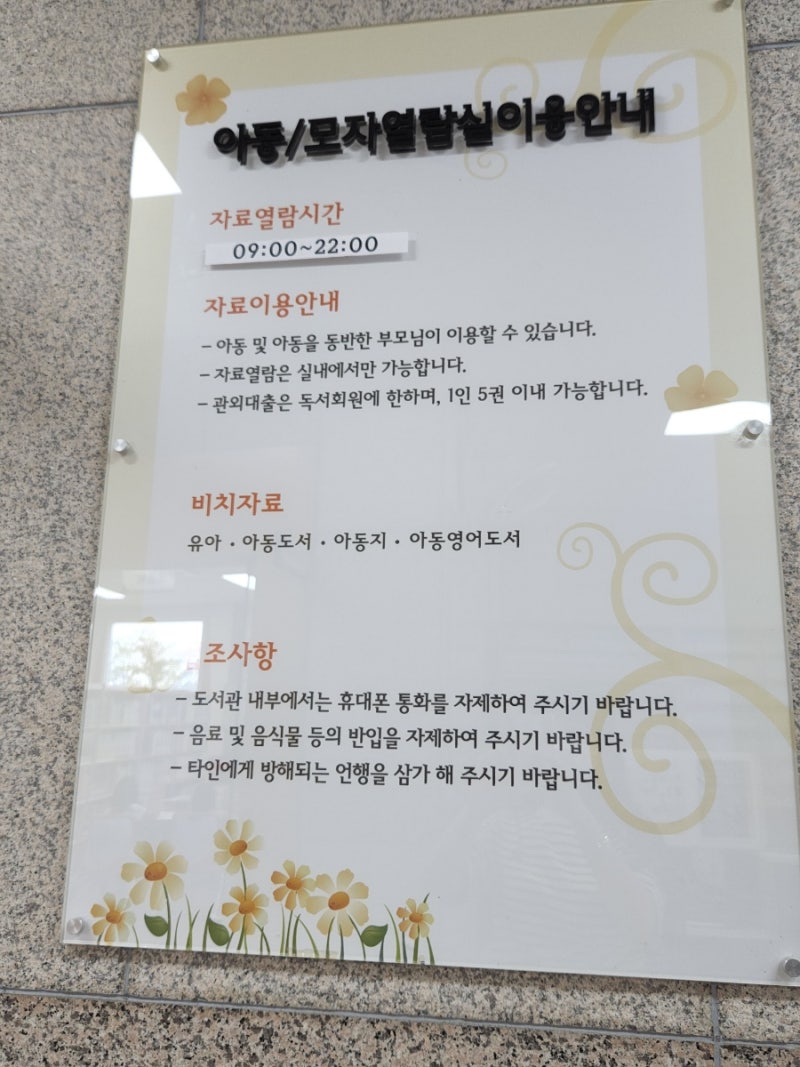 아동/모자열람실이용안내
자료열람시간
09:00~22:00
자료이용안내
- 아동 및 아동을 동반한 부모님이 이용할 수 있습니다.
- 자료열람은 실내에서만 가능합니다.
- 관외대출은 독서회원에 한하며, 1인 5권 이내 가능합니다.
비치자료
유아 · 아동도서 · 아동지 · 아동영어도서
조사항
- 도서관 내부에서는 휴대폰 통화를 자제하여 주시기 바랍니다.
- 음료 및 음식물 등의 반입을 자제하여 주시기 바랍니다.
- 타인에게 방해되는 언행을 삼가 해 주시기 바랍니다.